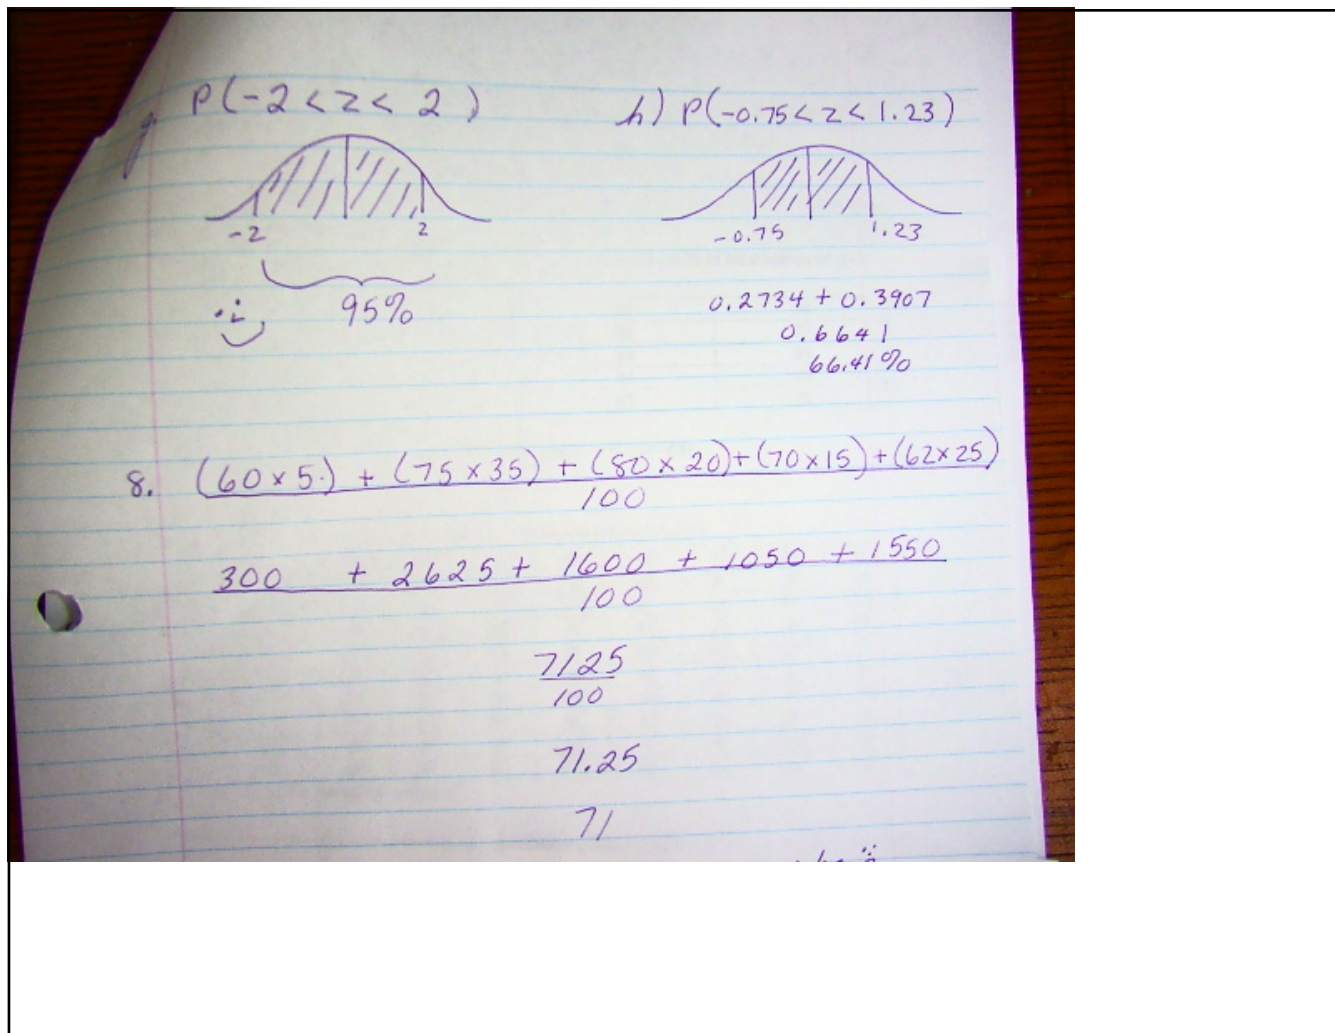 g. P(-2 < z < 2)
h) P(-0.75 < z < 1.23)
-2 2
-0.75 1.23
95%
0.2734 + 0.3907
0.6641
66.41%
8. (60 x 5.) + (75 x 35) + (80 x 20) + (70 x 15) + (62 x 25)
100
300 + 2625 + 1600 + 1050 + 1550
100
7125
100
71.25
71